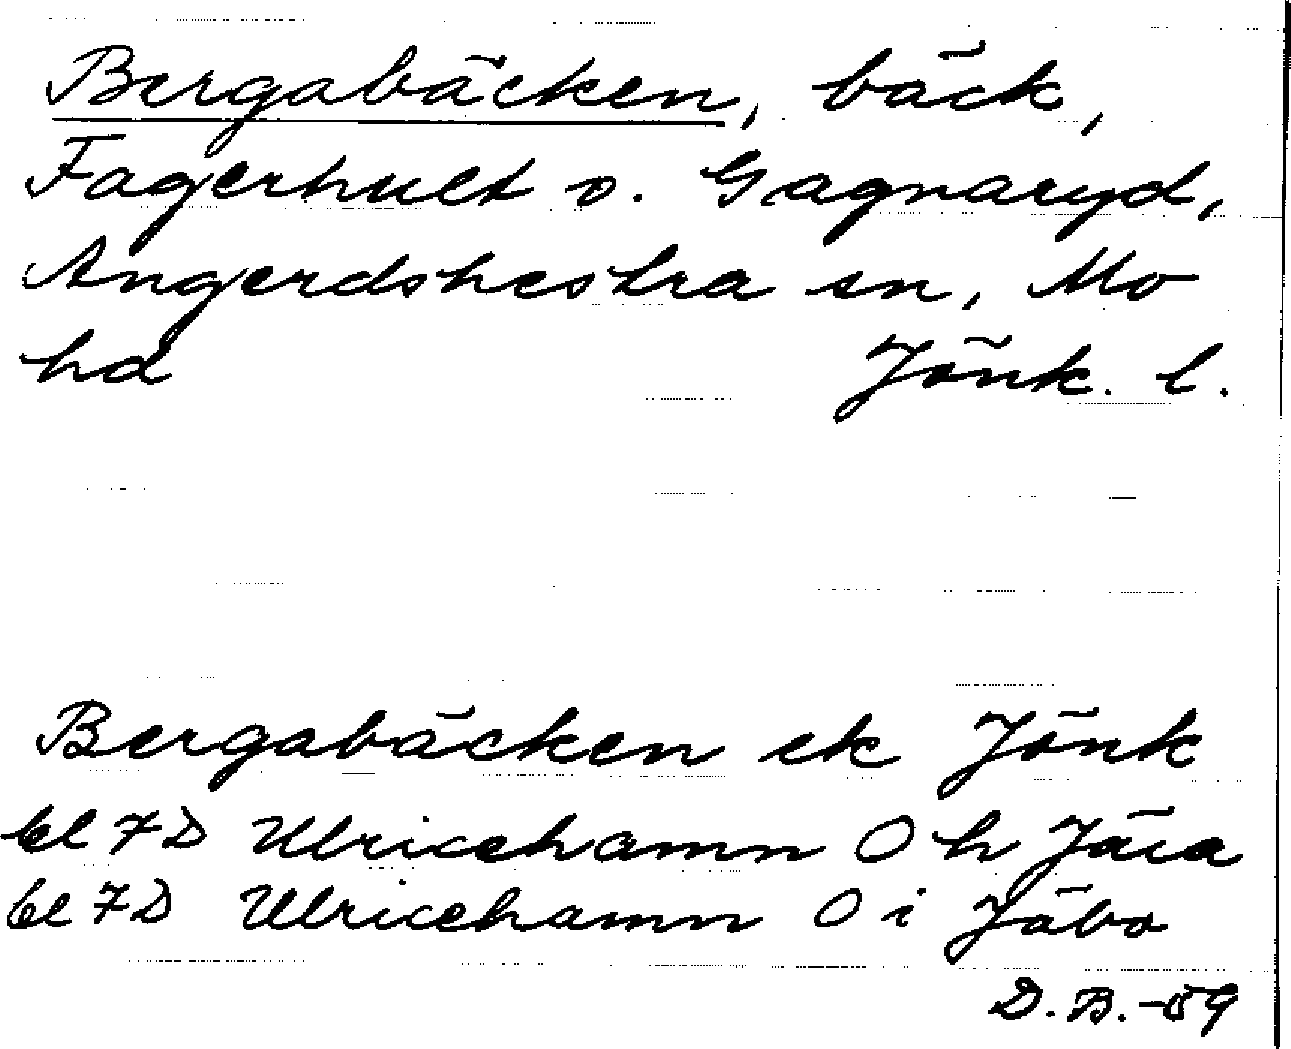 Bergabäcken, bäck,
Fagerhult o. Gagnaryd,
Angerdshestra sn, Mo
hd Jönk. l.
Bergabäcken ek Jönk
bl 7D Ulricehamn O h Jära
bl 7D Ulricehamn O i Jäbo
D.B.-59